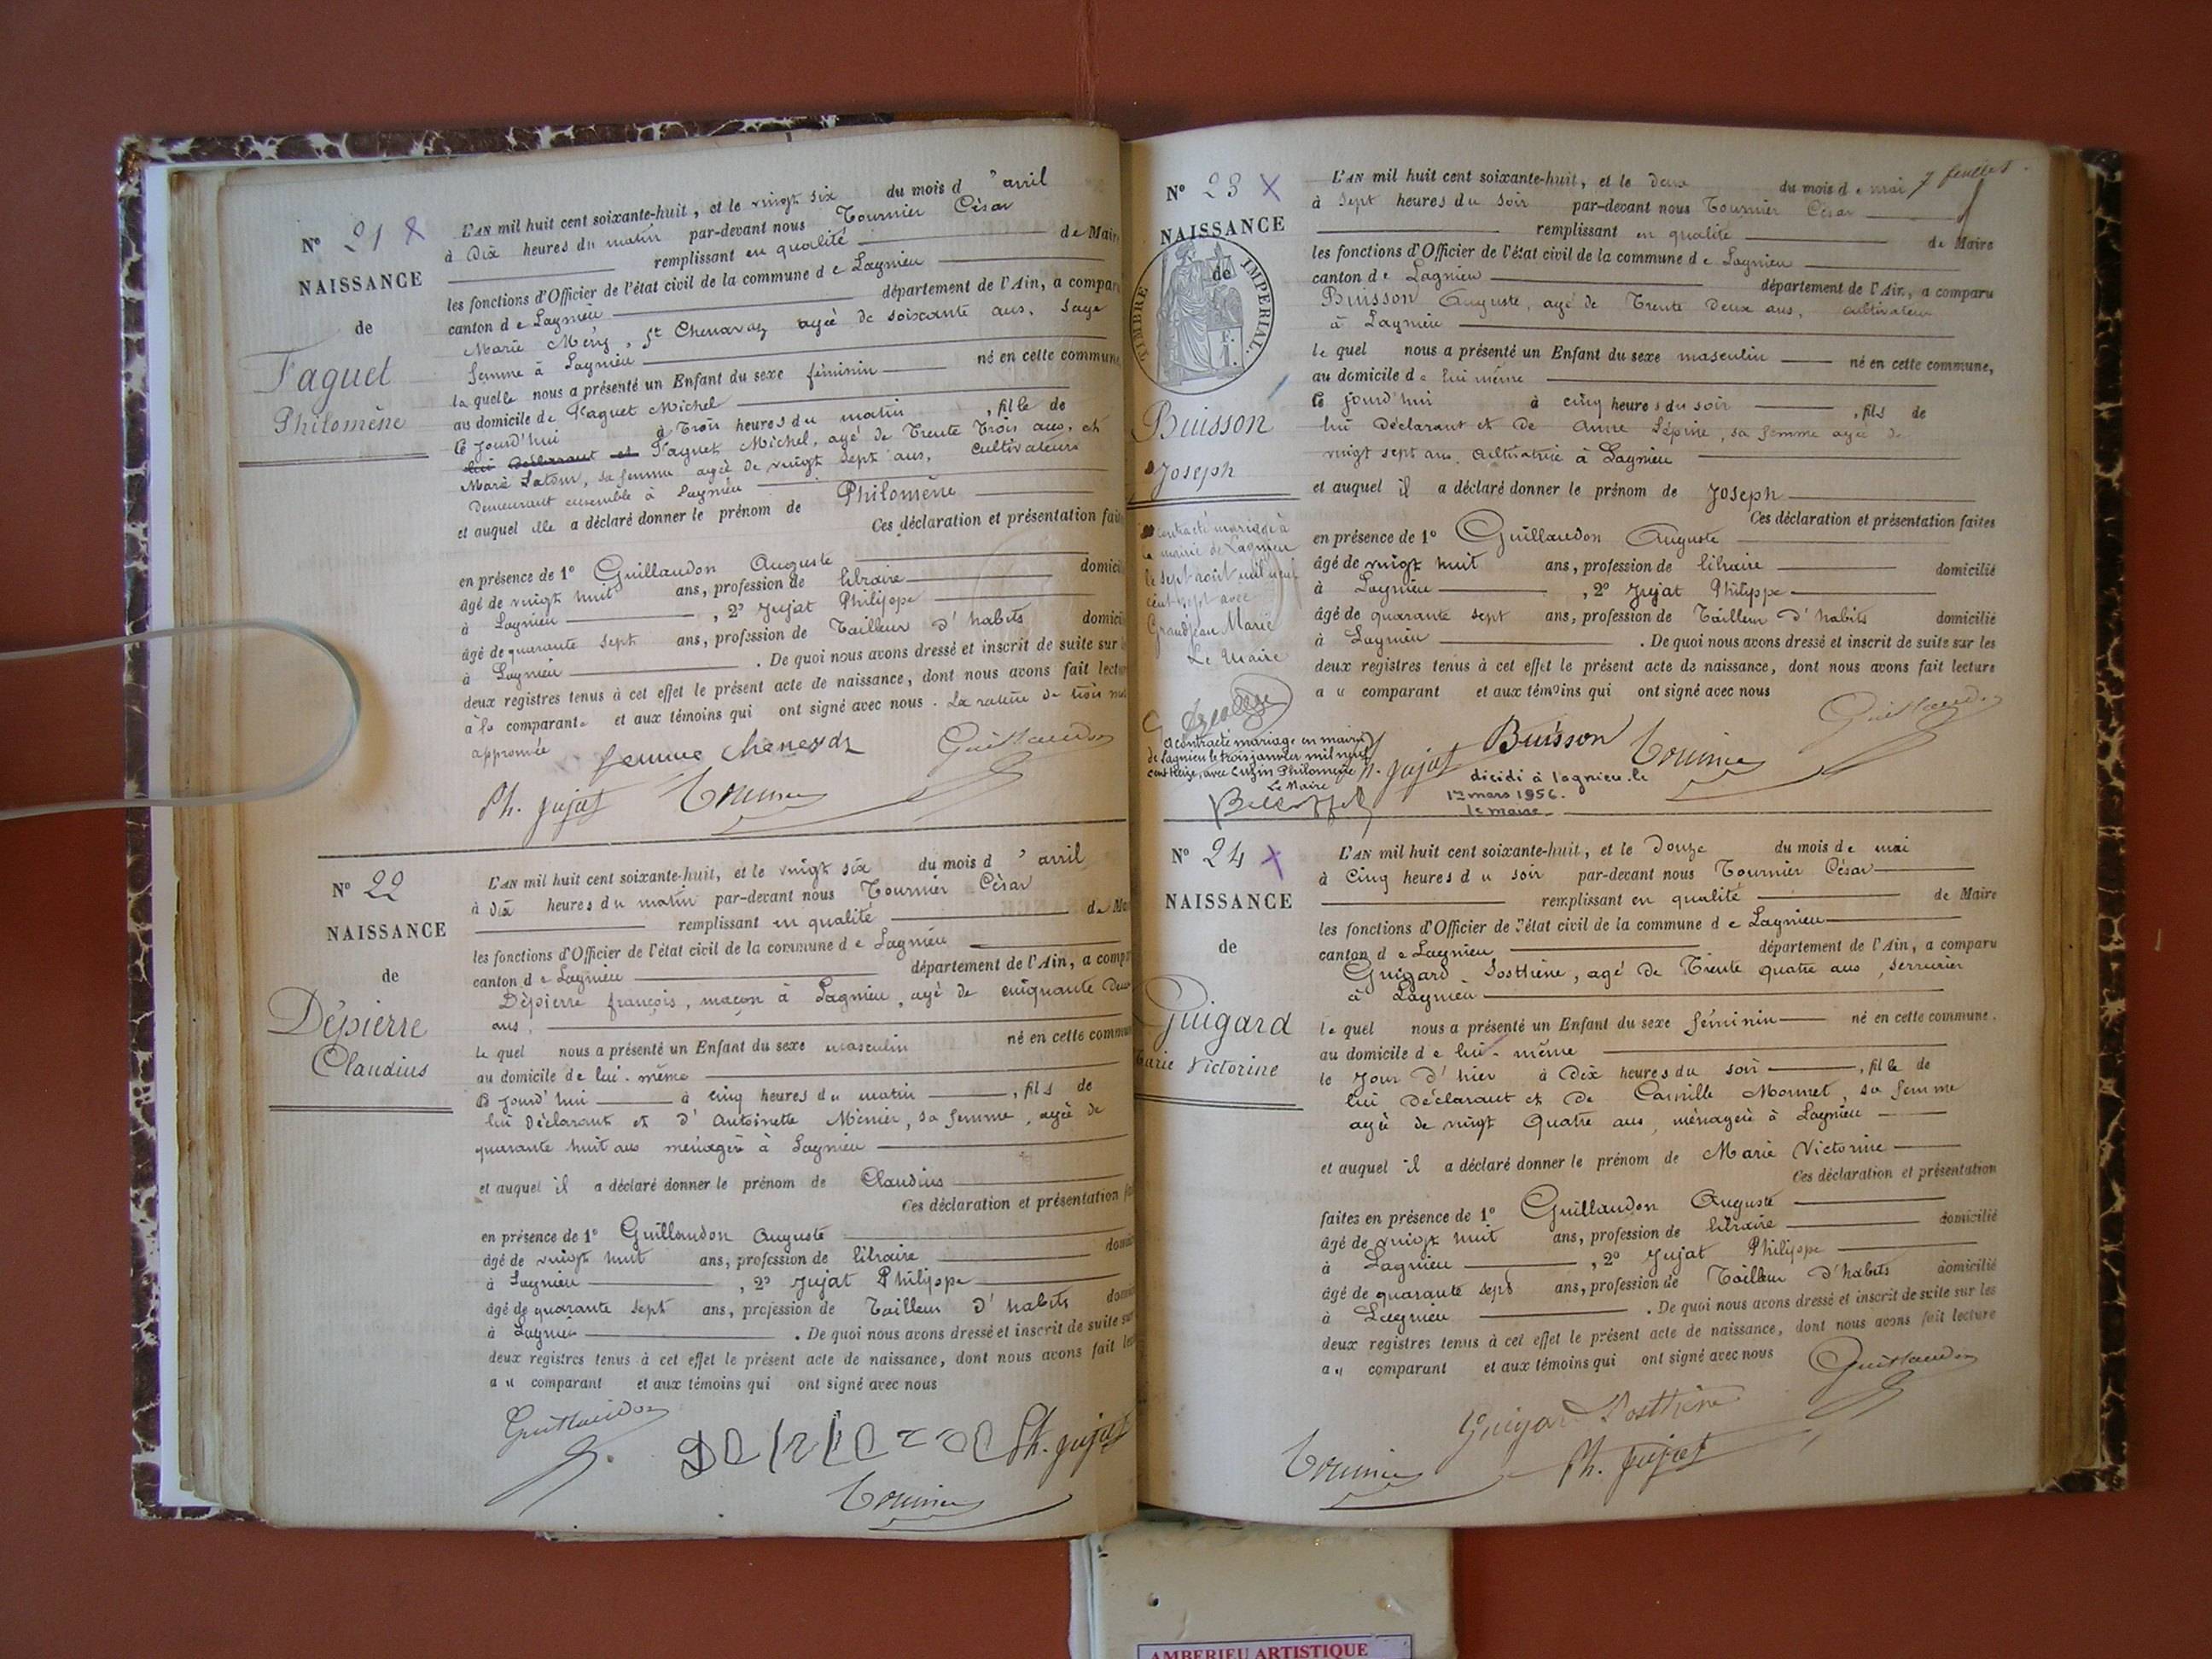 N° 21 X
NAISSANCE
de
Faguet
Philomène
L'AN mil huit cent soixante-huit, et le vingt six du mois d'avril
à Dix heures du matin par-devant nous Tournier César
remplissant en qualité de Maire
les fonctions d'Officier de l'état civil de la commune de Lagnieu
canton de Lagnieu département de l'Ain, a compar
Marie Méry, ft Chenavaz agée de soixante ans, Sage
femme à Lagnieu
la quelle nous a présenté un Enfant du sexe féminin né en cette commune
au domicile de Faguet Michel
ce jourd'hui à Trois heures du matin, fille de
lui déclarant et Faguet Michel, agé de Trente Trois ans, et
Marie Latour, sa femme agée de vingt sept ans, cultivateurs
Demeurant ensemble à Lagnieu
et auquel elle a déclaré donner le prénom de Philomène
Ces déclaration et présentation fait
en présence de 1° Guillaudon Auguste
âgé de vingt huit ans, profession de libraire domici
à Lagnieu, 2° Jujat Philippe
âgé de quarante sept ans, profession de Tailleur d'habits domici
à Lagnieu. De quoi nous avons dressé et inscrit de suite sur l
deux registres tenus à cet effet le présent acte de naissance, dont nous avons fait lectur
à la comparante et aux témoins qui ont signé avec nous. La rature de trois mots
approuvée
femme Chenavaz Guillaudon
Ph. Jujat Tournier
N° 22
NAISSANCE
de
Dépierre
Claudius
L'AN mil huit cent soixante-huit, et le vingt six du mois d'avril
à Dix heures du matin par-devant nous Tournier César
remplissant en qualité de Ma
les fonctions d'Officier de l'état civil de la commune de Lagnieu
canton de Lagnieu département de l'Ain, a comp
Dépierre françois, maçon à Lagnieu, agé de cinquante Deux
ans,
le quel nous a présenté un Enfant du sexe masculin né en cette commu
au domicile de lui-même
ce jourd'hui à cinq heures du matin, fils de
lui Déclarant et d'Antoinette Ménier, sa femme, agée de
quarante huit ans ménagère à Lagnieu
et auquel il a déclaré donner le prénom de Claudius
Ces déclaration et présentation fai
en présence de 1° Guillaudon Auguste
âgé de vingt huit ans, profession de libraire domi
à Lagnieu, 2° Jujat Philippe
âgé de quarante sept ans, profession de Tailleur d'habits domi
à Lagnieu. De quoi nous avons dressé et inscrit de suite sur
deux registres tenus à cet effet le présent acte de naissance, dont nous avons fait lec
au comparant et aux témoins qui ont signé avec nous
Guillaudon
Ph. Jujat
Tournier
7 feuillet
N° 23 X
NAISSANCE
de
TIMBRE IMPERIAL
Buisson
Joseph
contracté mariage à
la mairie de Lagnieu
le sept août mil neuf
cent sept avec
Grandjean Marie
Le Maire
a contracté mariage en mairie
de Lagnieu le trois janvier mil neuf
cent treize, avec Luzin Philomène
Le Maire
L'AN mil huit cent soixante-huit, et le deux du mois de mai
à sept heures du soir par-devant nous Tournier César
remplissant en qualité de Maire
les fonctions d'Officier de l'état civil de la commune de Lagnieu
canton de Lagnieu département de l'Ain, a comparu
Buisson Auguste, agé de Trente Deux ans, cultivateur
à Lagnieu
le quel nous a présenté un Enfant du sexe masculin né en cette commune,
au domicile de lui même
ce jourd'hui à cinq heures du soir, fils de
lui Déclarant et de Anne Lépine, sa femme agée de
vingt sept ans, cultivatrice à Lagnieu
et auquel il a déclaré donner le prénom de Joseph
Ces déclaration et présentation faites
en présence de 1° Guillaudon Auguste
âgé de vingt huit ans, profession de libraire domicilié
à Lagnieu, 2° Jujat Philippe
âgé de quarante sept ans, profession de Tailleur d'habits domicilié
à Lagnieu. De quoi nous avons dressé et inscrit de suite sur les
deux registres tenus à cet effet le présent acte de naissance, dont nous avons fait lecture
au comparant et aux témoins qui ont signé avec nous
Guillaudon
Ph. Jujat Buisson Tournier
décidé à lagnieu le
1er mars 1956.
le maire
N° 24 X
NAISSANCE
de
Guigard
Marie Victorine
L'AN mil huit cent soixante-huit, et le Douze du mois de mai
à Cinq heures du soir par-devant nous Tournier César
remplissant en qualité de Maire
les fonctions d'Officier de l'état civil de la commune de Lagnieu
canton de Lagnieu département de l'Ain, a comparu
Guigard Sosthène, agé de Trente quatre ans, serrurier
à Lagnieu
le quel nous a présenté un Enfant du sexe féminin né en cette commune.
au domicile de lui-même
le Jour d'hier à Dix heures du soir, fille de
lui Déclarant et de Camille Monnet, sa femme
agée de vingt Quatre ans, ménagère à Lagnieu
et auquel il a déclaré donner le prénom de Marie Victorine
Ces déclaration et présentation
faites en présence de 1° Guillaudon Auguste
âgé de vingt huit ans, profession de libraire domicilié
à Lagnieu, 2° Jujat Philippe
âgé de quarante sept ans, profession de Tailleur d'habits domicilié
à Lagnieu. De quoi nous avons dressé et inscrit de suite sur les
deux registres tenus à cet effet le présent acte de naissance, dont nous avons fait lecture
au comparant et aux témoins qui ont signé avec nous
Guillaudon
Guigard Sosthène
Tournier Ph. Jujat
AMBERIEU ARTISTIQUE